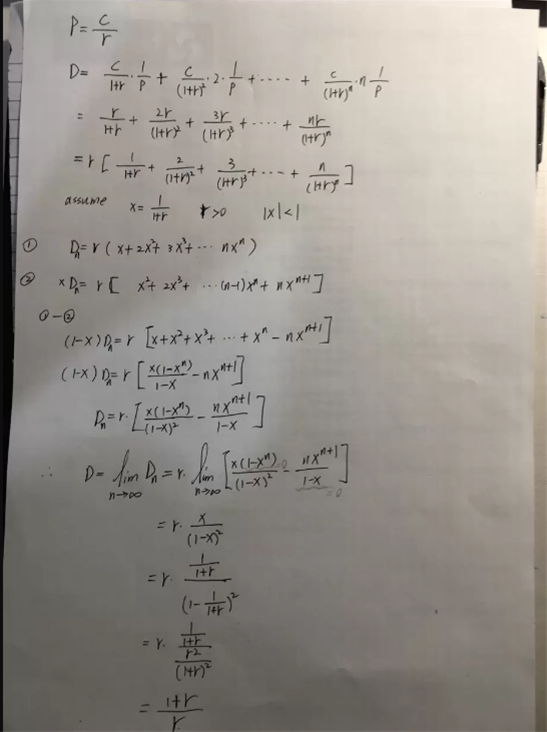 P = c/r
D = c/(1+r) · 1/P + c/(1+r)² · 2 · 1/P + ···· + c/(1+r)ⁿ · n 1/P
= r/(1+r) + 2r/(1+r)² + 3r/(1+r)³ + ···· + nr/(1+r)ⁿ
= r [ 1/(1+r) + 2/(1+r)² + 3/(1+r)³ + ···· + n/(1+r)ⁿ ]
assume x = 1/(1+r) r>0 |x|<1
① Dₙ = r ( x + 2x² + 3x³ + ··· nxⁿ )
② xDₙ = r [ x² + 2x³ + ···(n-1)xⁿ + nxⁿ⁺¹ ]
①-②
(1-x) Dₙ = r [ x + x² + x³ + ··· + xⁿ - nxⁿ⁺¹ ]
(1-x) Dₙ = r [ x(1-xⁿ)/(1-x) - nxⁿ⁺¹ ]
Dₙ = r · [ x(1-xⁿ)/(1-x)² - nxⁿ⁺¹/(1-x) ]
∴ D = lim n→∞ Dₙ = r · lim n→∞ [ x(1-xⁿ)→0/(1-x)² - nxⁿ⁺¹/(1-x) =0 ]
= r · x/(1-x)²
= r · (1/(1+r))/(1 - 1/(1+r))²
= r · (1/(1+r))/(r²/(1+r)²)
= (1+r)/r